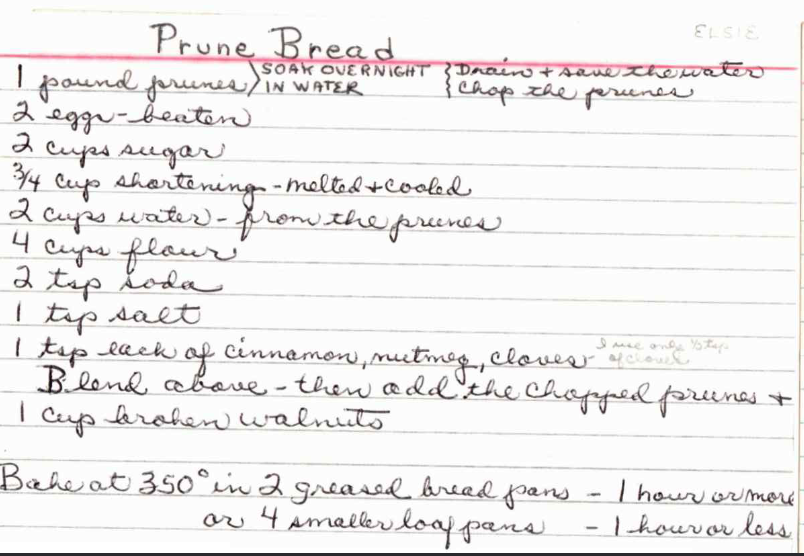 ELSIE
Prune Bread
1 pound prunes } SOAK OVERNIGHT IN WATER { Drain + save the water Chop the prunes
2 eggs - beaten
2 cups sugar
3/4 cup shortening - melted + cooled
2 cups water - from the prunes
4 cups flour
2 tsp soda
1 tsp salt
1 tsp each of cinnamon, nutmeg, cloves - I use only ½ tsp. of cloves
Blend above - then add the chopped prunes +
1 cup broken walnuts
Bake at 350° in 2 greased bread pans - 1 hour or more
or 4 smaller loaf pans - 1 hour or less